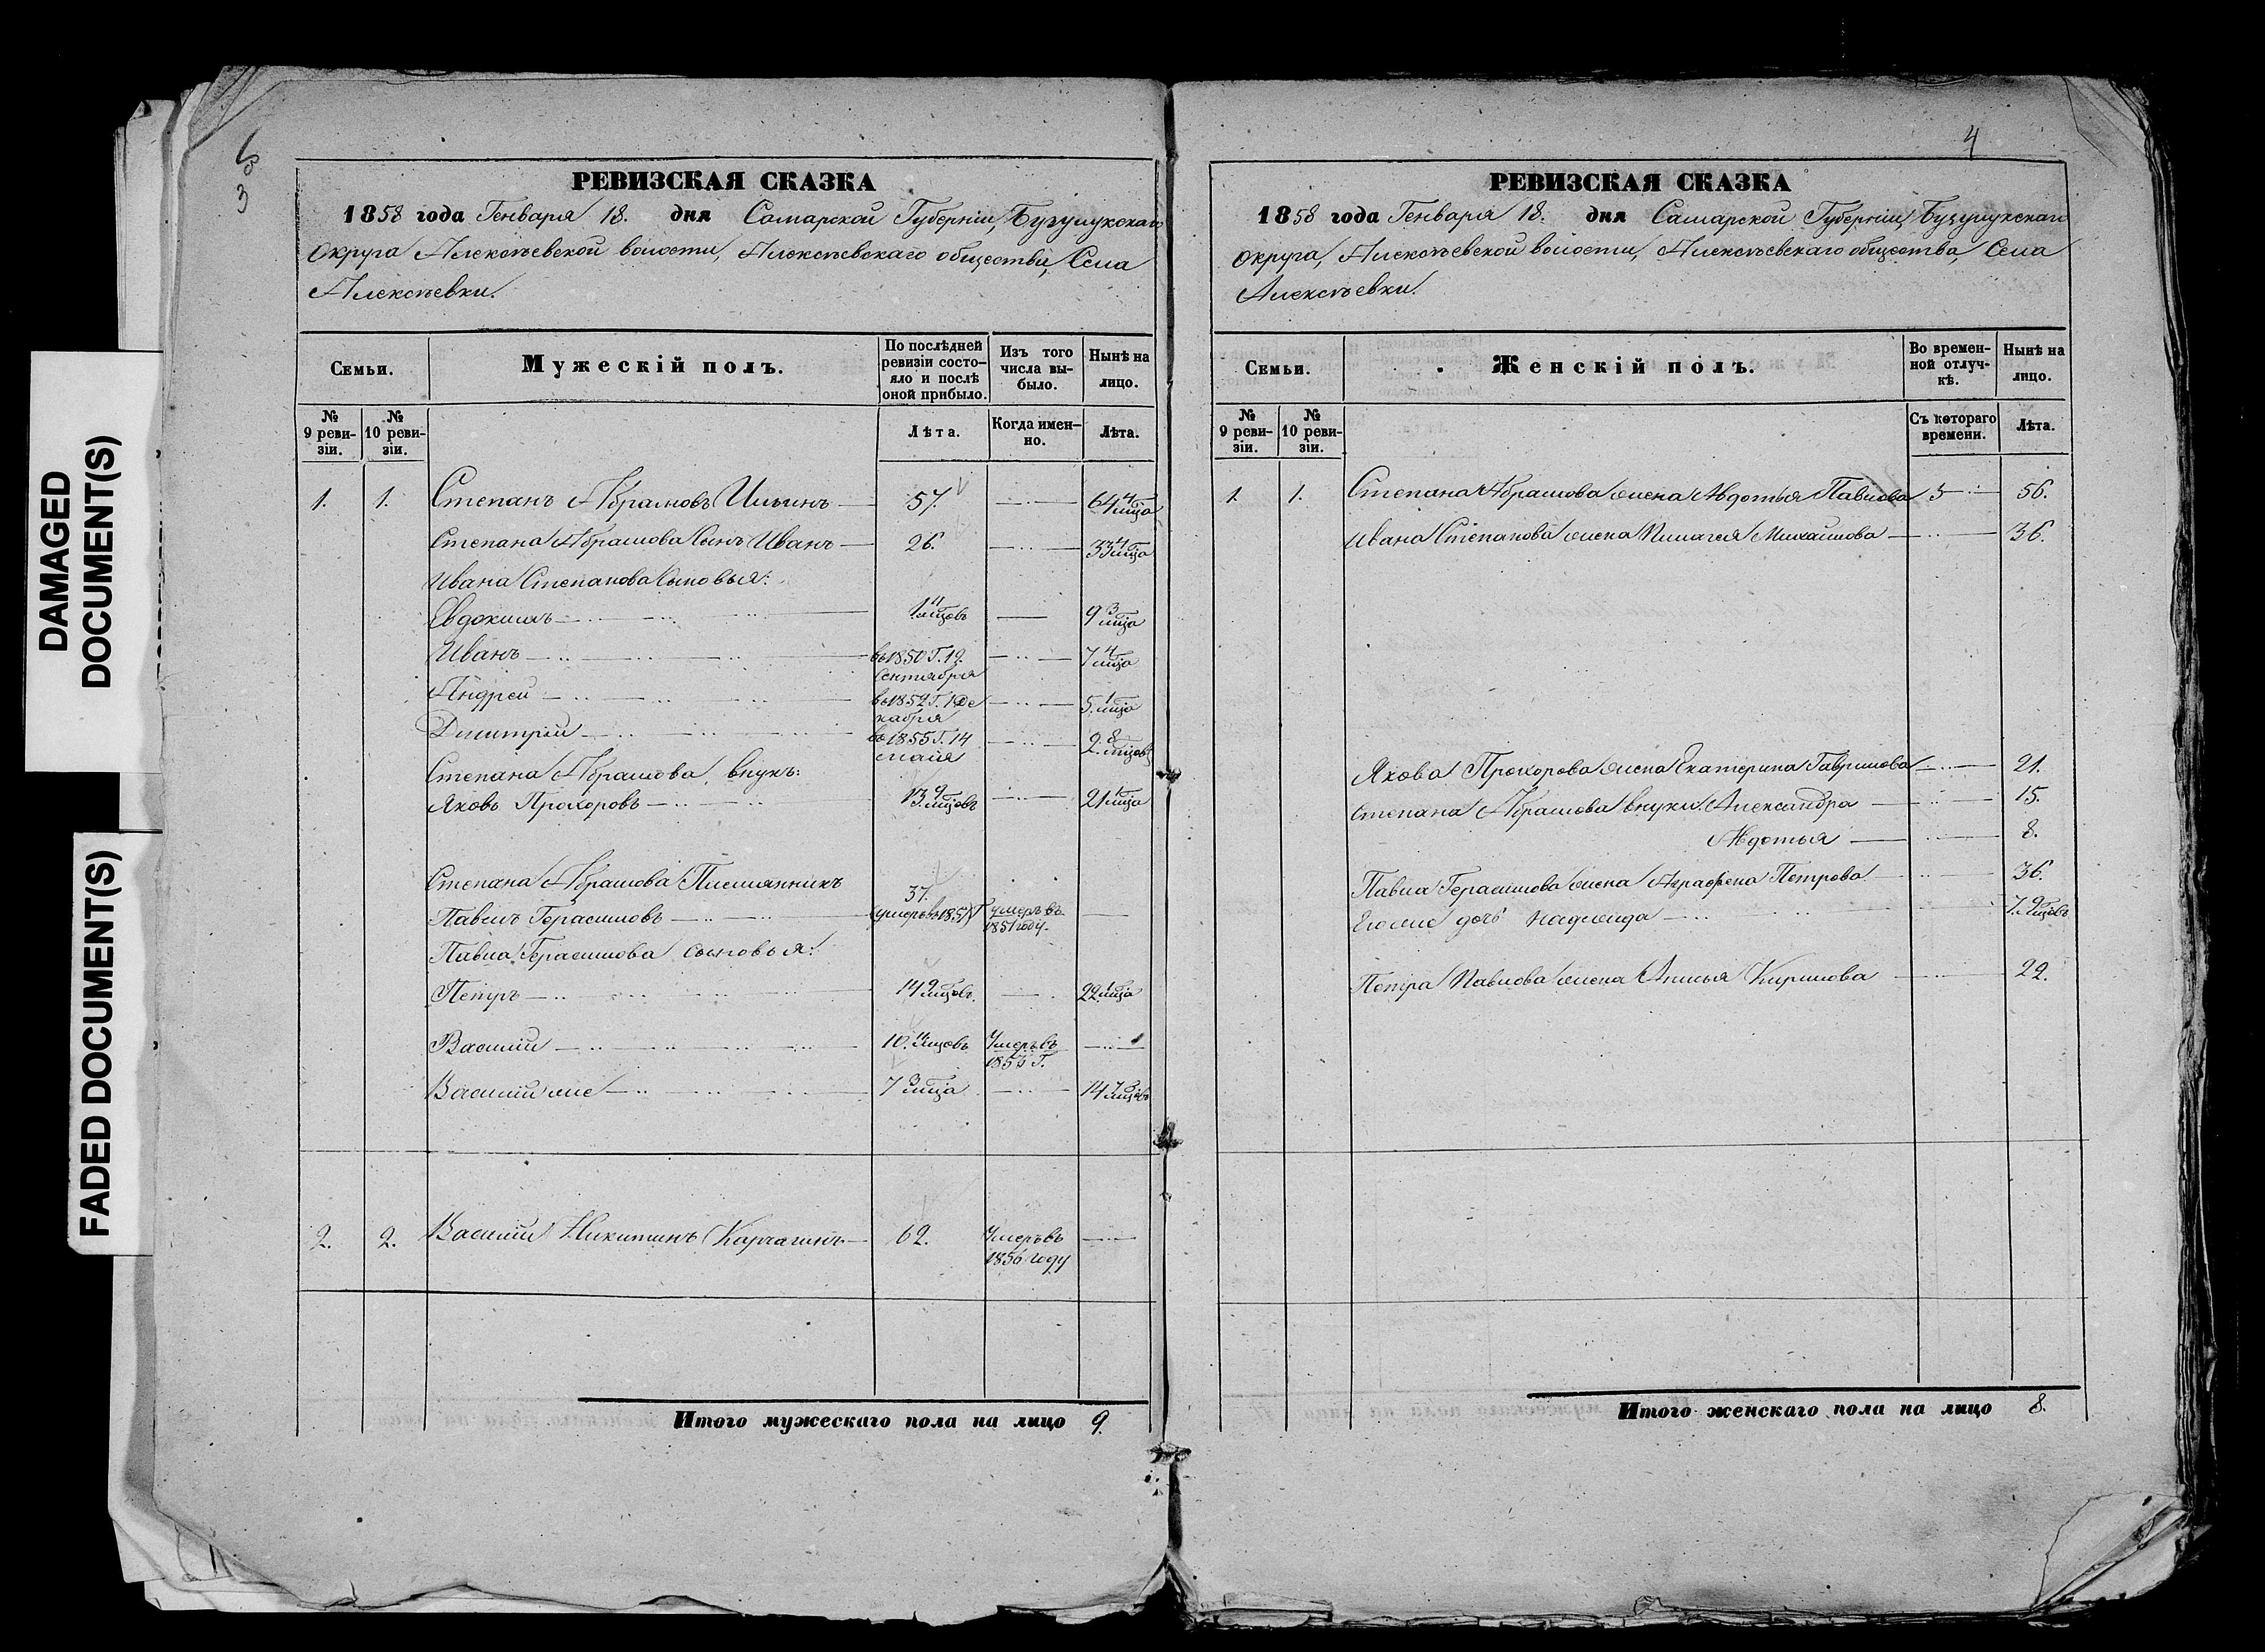 DAMAGED
DOCUMENT(S)
FADED DOCUMENT(S)
3
РЕВИЗСКАЯ СКАЗКА
1858 года Генваря 18. дня Самарской Губерніи, Бузулукскаго
Округа Алексѣевской волости, Алексѣевскаго общества, Села
Алексѣевки.
Семьи.
Мужескій полъ.
По послѣдней ревизіи состо-яло и послѣ оной прибыло.
Изъ того числа вы-было.
Нынѣ на лицо.
№ 9 реви-зіи.
№ 10 реви-зіи.
Лѣта.
Когда имен-но.
Лѣта.
1. 1. Степанъ Абрамовъ Ильинъ 57. 64 4 мца
Степана Абрамова Сынъ Иванъ 26. 33 4 мца
Ивана Степанова Сыновья:
Евдокимъ 1 11 мцовъ 9 3 мца
Иванъ въ 1850 Г. 19. Сентября 7 4 мца
Андрей въ 1852 Г. 1 Де кабря 5 1 мца
Димитрій въ 1855 Г. 14 мая 2. 8 мцовъ
Степана Абрамова внукъ:
Яковъ Прохоровъ 13 9 мцовъ 21 1 мца
Степана Абрамова Племянникъ
Павелъ Герасимовъ 37. умеръ въ 1851 году
Павла Герасимова сыновья:
Петръ 14 9 мцовъ. 22 1 мца
Василій 10. 11 мцовъ Умеръ въ Г.
Василій же 7 3 мца 14 7 мцовъ
2. 2. Василій Никитинъ Карчагинъ 62. Умеръ въ 1856 году
Итого мужескаго пола на лицо 9.
4
РЕВИЗСКАЯ СКАЗКА
1858 года Генваря 18. дня Самарской Губерніи, Бузулукскаго
Округа, Алексѣевской волости, Алексѣевскаго общества, Села
Алексѣевки.
Семьи.
Женскій полъ.
Во времен-ной отлуч-кѣ.
Нынѣ на лицо.
№ 9 реви-зіи.
№ 10 реви-зіи.
Съ котораго времени.
Лѣта.
1. 1. Степана Абрамова жена Авдотья Павлова 56.
Ивана Степанова жена Пилагея Михайлова 36.
Якова Прохорова жена Екатерина Гаврилова 21.
Степана Абрамова внуки Александра 15.
Авдотья 8.
Павла Герасимова жена Аграфена Петрова 36.
Егоже дочь Надежда 7. 9 мцовъ
Петра Павлова жена Анисья Кирилова 22.
Итого женскаго пола на лицо 8.